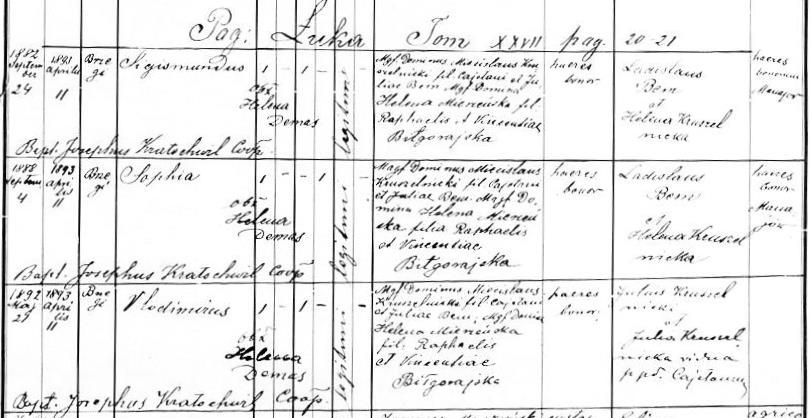 Pag: Łuka Tom XXVII pag. 20-21
1882 Septem bri 24
1893 Aprilis 11
Brze gi
Sigismundus
1 - 1 -
obst. Helena Demas
legitimi
Mgf Dominus Miecislaus Kru
szelnicki fil. Cajetani et Ju
liae Bem Mgf Domina
Helena Mierzeńska fil
Raphaelis et Vincentiae
Biłgorajska
haeres bonor
Ladislaus
Bem
et
Helena Kruszel
nicka
haeres
bonorum
Manajow
Bapt. Josephus Kratochwil Coop.
1888 Septem 4
1893 Aprilis 11
Brze gi
Sophia
1 - - 1 -
obst. Helena Demas
legitimi
Magf Dominus Miecislaus
Kruszelnicki fil Cajetani
et Juliae Bem. Mgf Do
mina Helena Mierzeń
ska filia Raphaelis
et Vincentiae
Biłgorajska
haeres bonor
Ladislaus
Bem
et
Helena Kruszel
nicka
haeres
bonor
Mana
jów
Bapt. Josephus Kratochwil Coop
1892 Maj 27
1893 Aprilis 11
Brze gi
Vlodimirus
1 - 1 -
obst. Helena Demas
legitimi
Mgf Dominus Miecislaus
Kruszelnicki fil Cajetani
et Juliae Bem, Mgf Domina
Helena Mierzeńska
fil. Raphaelis
et Vincentiae
Biłgorajska
haeres bonor.
Julius Kruszel
nicki
et
Julia Kruszel
nicka vidua
p. pd. Cajetanum
Bapt. Josephus Kratochwil Coop.